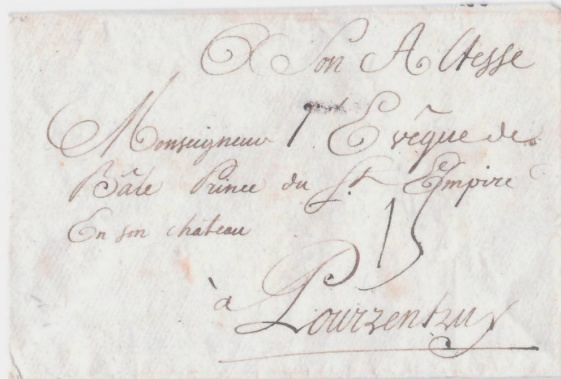 A Son Altesse
Monseigneur l'Evêque de
Bâle Prince du St Empire
En son château
15
à Pourrentruy